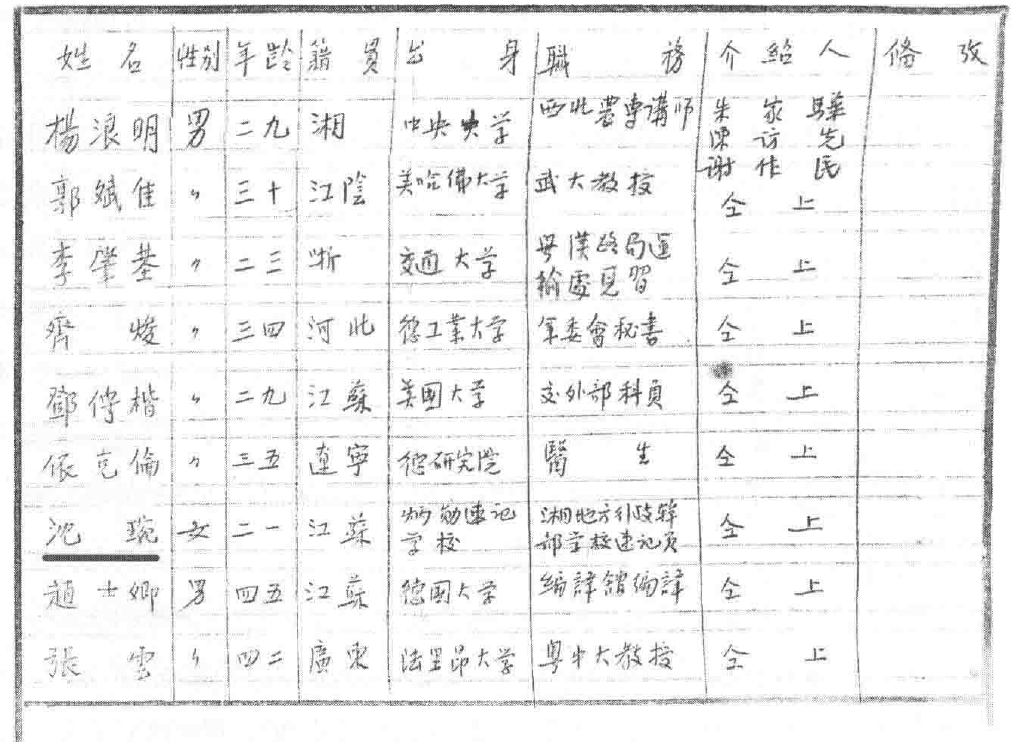 姓名 性別 年齡 籍貫 出身 職務 介紹人 條攷
楊浪明 男 二九 湘 中央大学 西北農專講師 朱家驊 陳訪先 謝作民
郭斌佳 〃 三十 江陰 美哈佛大学 武大教授 仝上
李肇基 〃 二三 浙 交通大学 粤漢路局運輸處見習 仝上
齊焌 〃 三四 河北 德工業大学 軍委會秘書 仝上
鄧傳楷 〃 二九 江蘇 美國大学 交外部科員 仝上
依克倫 〃 三五 遼寧 德研究院 醫生 仝上
沈琬 女 二一 江蘇 炳勛速記学校 湘地方行政幹部学校速記員 仝上
趙士卿 男 四五 江蘇 德國大学 編譯館編譯 仝上
張雲 〃 四二 廣東 法里昂大学 粤中大教授 仝上